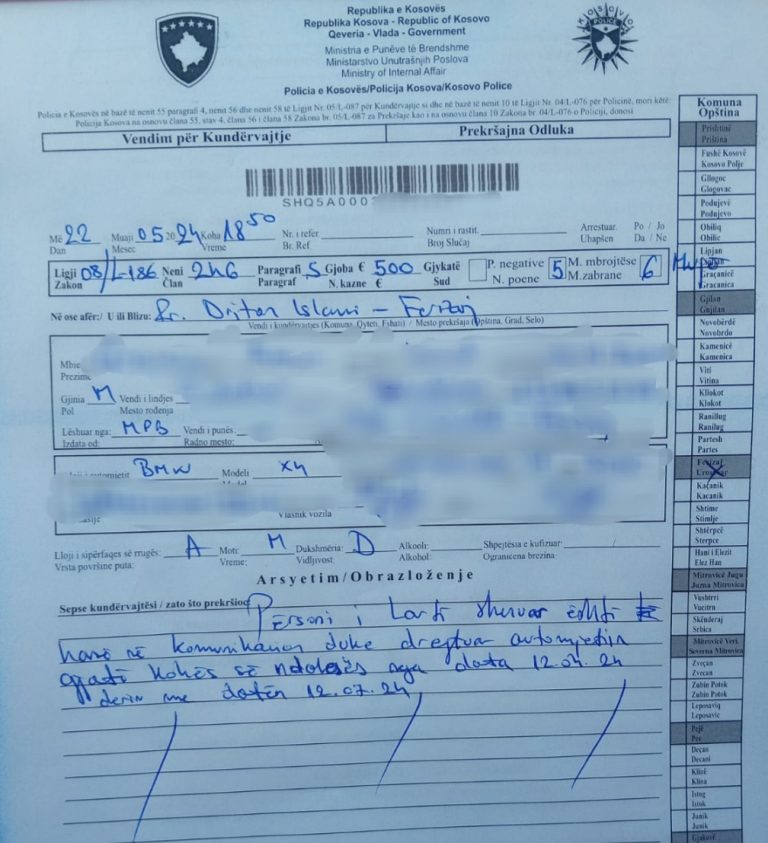 Republika e Kosovës
Republika Kosova - Republic of Kosovo
Qeveria - Vlada - Government
Ministria e Punëve të Brendshme
Ministarstvo Unutrašnjih Poslova
Ministry of Internal Affair
Policia e Kosovës/Policija Kosova/Kosovo Police
KOSOVO
POLICE
Policia e Kosovës në bazë të nenit 55 paragrafi 4, nenit 56 dhe nenit 58 të Ligjit Nr. 05/L-087 për Kundërvajtje si dhe në bazë të nenit 10 të Ligjit Nr. 04/L-076 për Policinë, mori këtë:
Policija Kosova na osnovu člana 55, stav 4, člana 56 i člana 58 Zakona br. 05/L-087 za Prekršaje kao i na osnovu člana 10 Zakona br. 04/L-076 o Policiji, donosi
Vendim për Kundërvajtje Prekršajna Odluka
SHQ5A000
Më 22 Muaji 05 2024 Koha 18 50 Nr. i refer Numri i rastit. Arrestuar Po / Jo
Dan Mesec Vreme Br. Ref. Broj Slučaj Uhapšen Da / Ne
Ligji 08/L-186 Neni 246 Paragrafi 5 Gjoba € 500 Gjykatë P. negative 5 M. mbrojtëse 6
Zakon Član Paragraf N. kazne € Sud N. poene M.zabrane
Në ose afër:/ U ili Blizu: Rr. Dritan Islami - Ferizaj
Vendi i kundërvajtjes (Komuna, Qyteti, Fshati) / Mesto prekršaja (Opština, Grad, Selo)
Mbie
Prezime
Gjinia M Vendi i lindjes
Pol Mesto rođenja
Lëshuar nga: MPB Vendi i punës:
Izdata od: Radno mesto:
BMW Modeli X4
Vlasnik vozila
Lloji i sipërfaqes së rrugës: A Motr: M Dukshmëria: D Alkooli: Shpejtësia e kufizuar:
Vrsta površine puta: Vreme: Vidljivost: Alkohol: Ograničena brzina:
Arsyetim/Obrazloženje
Sepse kundërvajtësi / zato što prekršioc Personi i Lartë shenuar është
në komunikacion duke drejtuar automjetin
gjatë kohës së ndalesës nga data 12.04.24
deri me datën 12.07.24
Komuna
Opština
Prishtinë
Priština
Fushë Kosovë
Kosovo Polje
Gllogoc
Glogovac
Podujevë
Podujevo
Obiliq
Obilic
Lipjan
Graçanicë
Gracanica
Gjilan
Gnjilan
Novobërdë
Novobrdo
Kamenicë
Kamenica
Viti
Vitina
Kllokot
Klokot
Ranillug
Ranilug
Partesh
Partes
Ferizaj
Kaçanik
Kacanik
Shtime
Stimlje
Shtërpcë
Sterpce
Hani i Elezit
Elez Han
Mitrovicë Jugu
Juzna Mitrovica
Vushtrri
Vucitrn
Skënderaj
Srbica
Mitrovicë Veri
Severna Mitrovica
Zveçan
Zvecan
Zubin Potok
Zubin Potok
Leposaviq
Leposavic
Pejë
Pec
Deçan
Decani
Klinë
Klina
Istog
Istok
Junik
Junik
Gjakovë